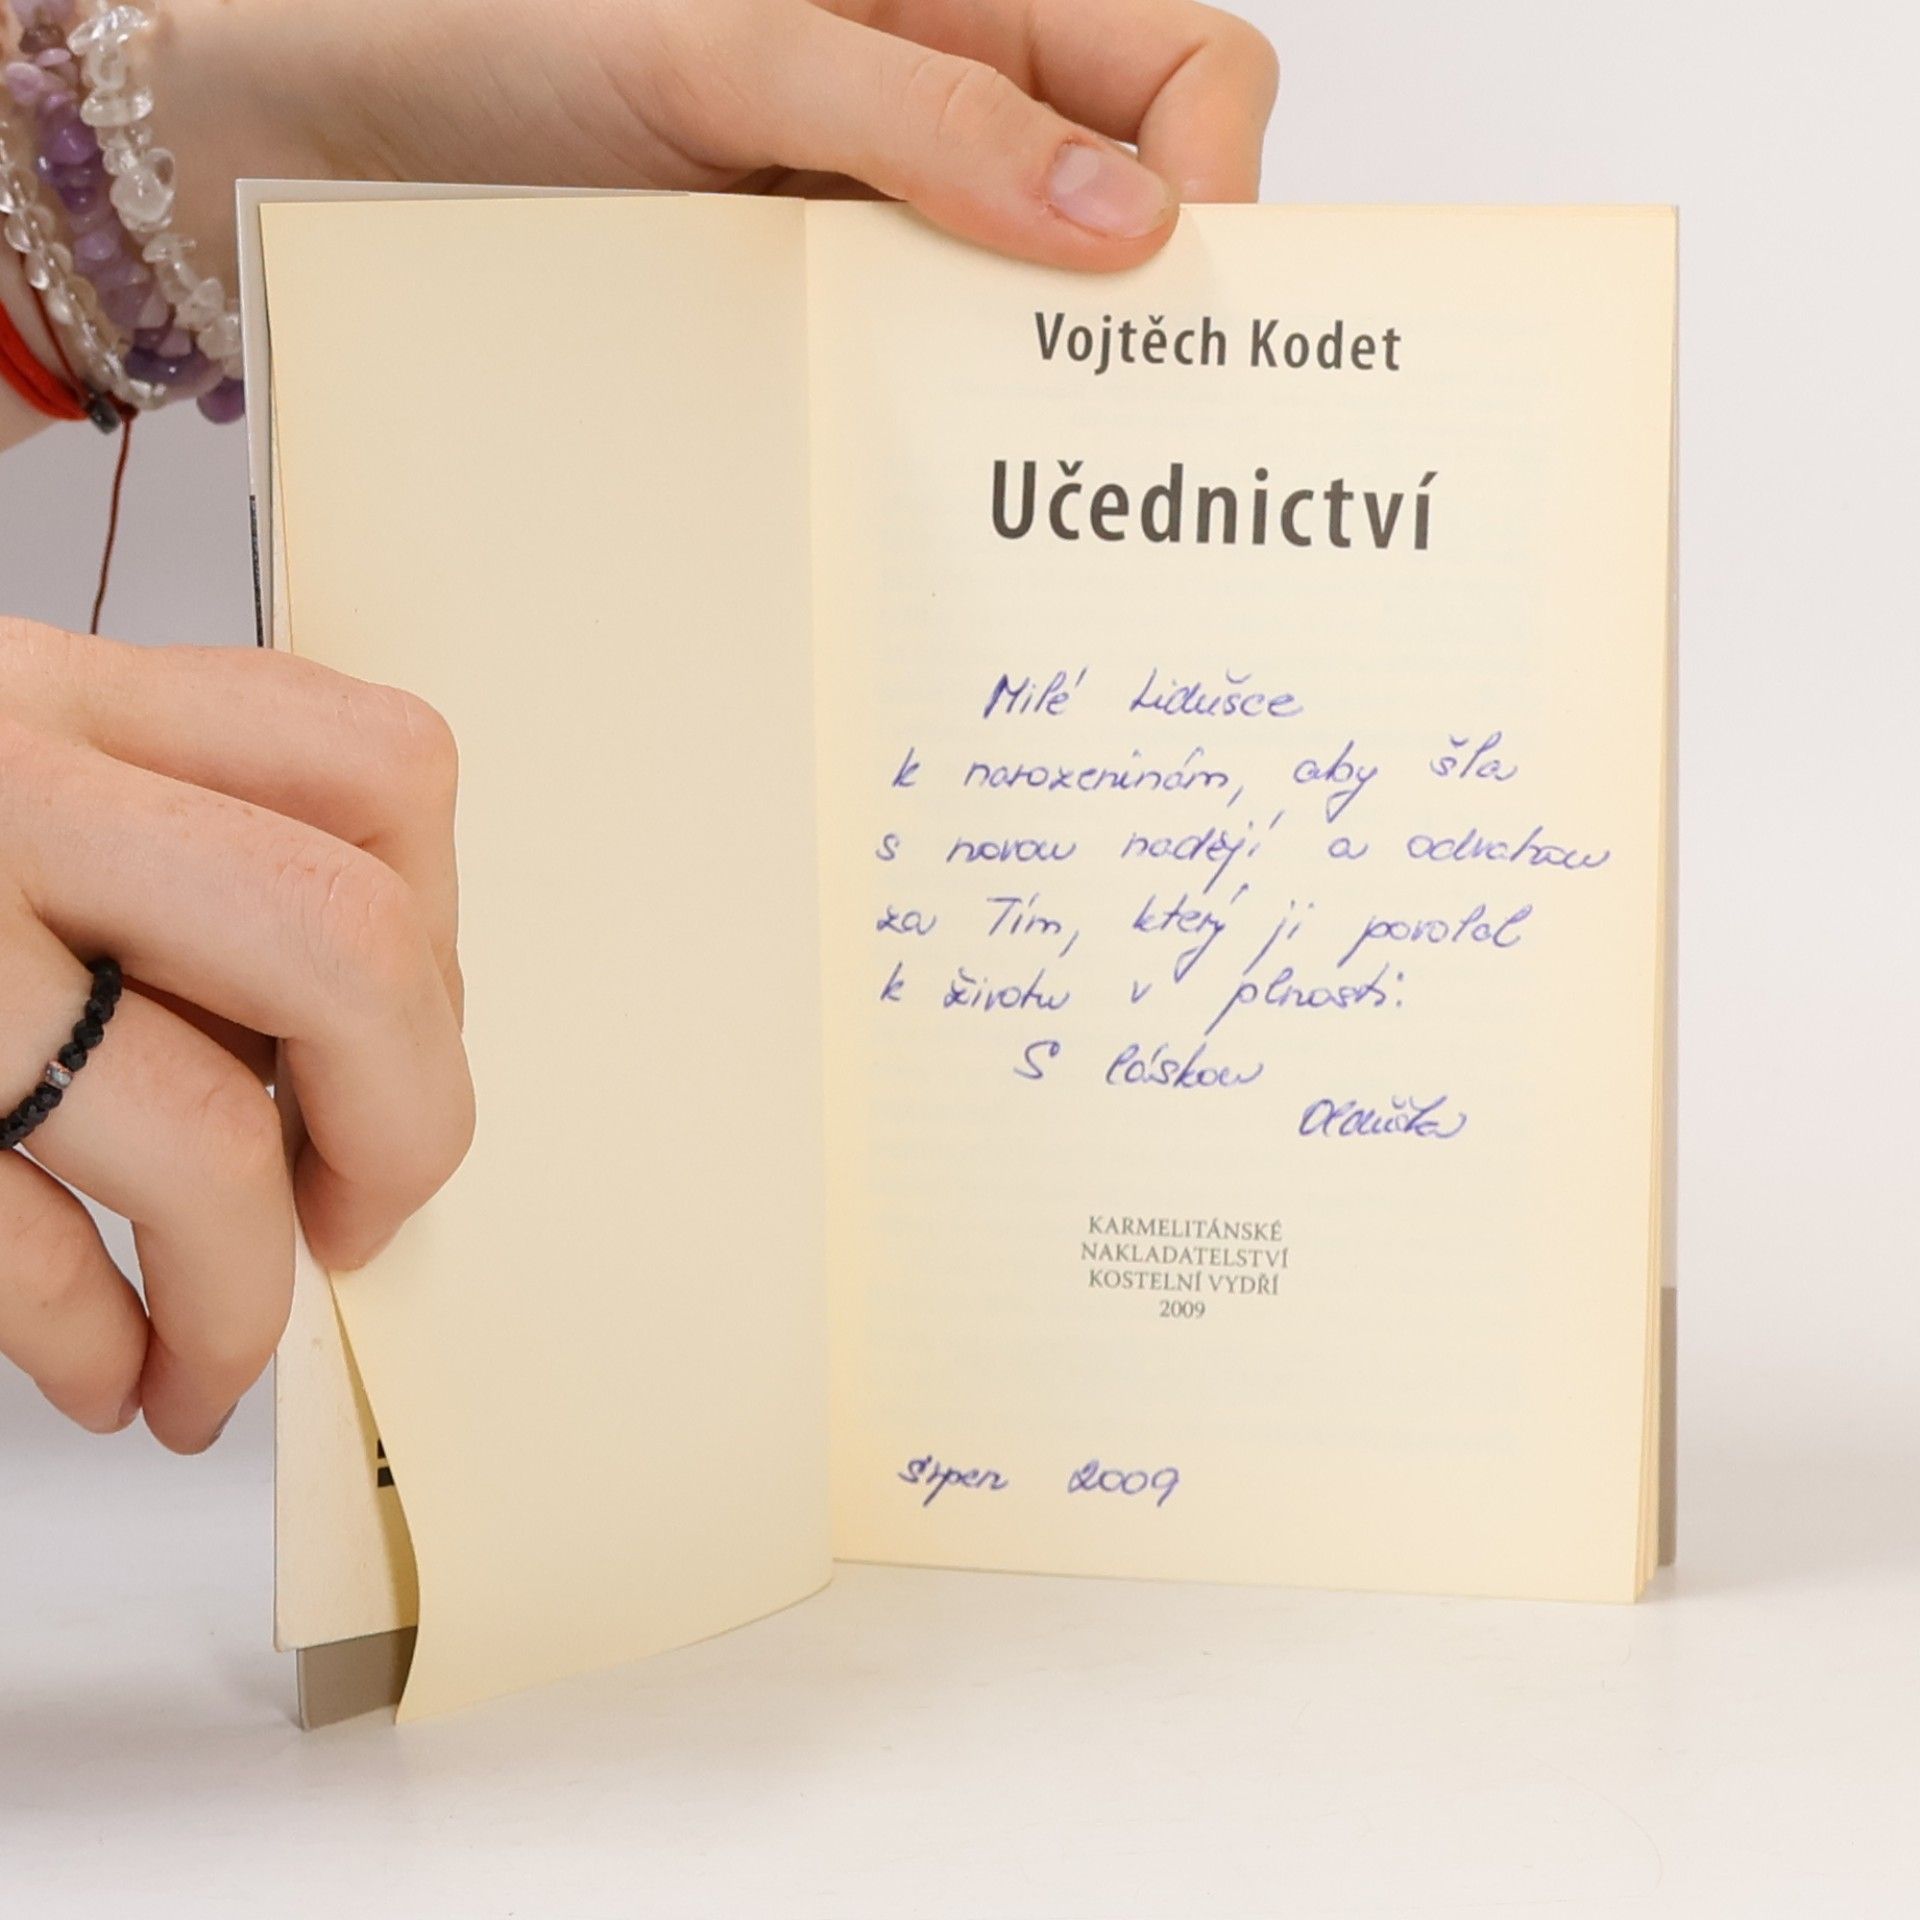 Vojtěch Kodet
Učednictví
Milé Lidušce
k narozeninám, aby šla
s novou nadějí a odvahou
za Tím, který ji povolal
k životu v plnosti.
S láskou
srpen 2009
KARMELITÁNSKÉ
NAKLADATELSTVÍ
KOSTELNÍ VYDŘÍ
2009